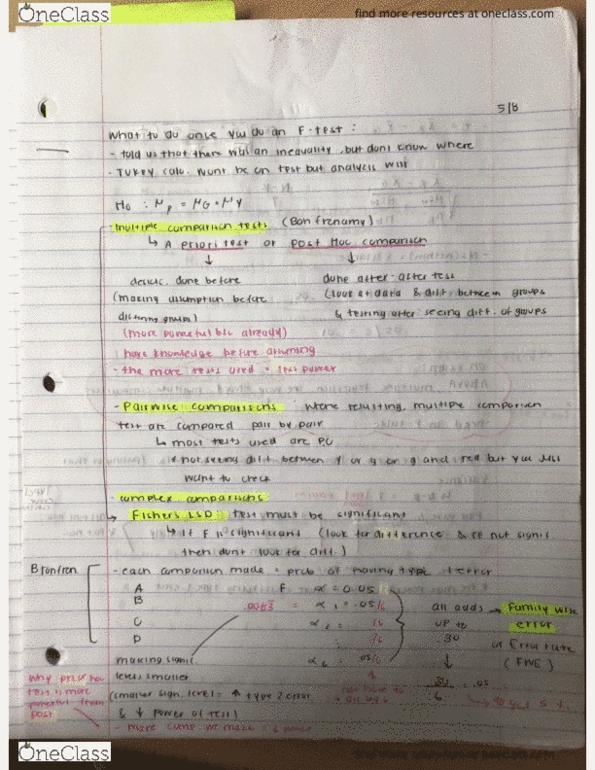 OneClass
find more resources at oneclass.com
5/8
What to do once you do an F-test :
- told us that there will an inequality, but dont know where
- TUKEY calc. wont be on test but analysis will
Ho : μp = μG = μY
- multiple comparison tests (Bonfrenamy)
↳ A priori test or post Hoc comparison
↓ ↓
desc. done before
done after-after test
(making assumption before
(look at data & diff. between groups
groups)
& testing after seeing diff. of groups
(more powerful b/c already)
have knowledge before assuming
- the more tests used = less power
- Pairwise comparisons : where resulting multiple comparison
test are compared pair by pair
↳ most tests used are PC
not seeing diff between Y or g or g and red but you still
want to check
- complex comparisons
→ Fisher's LSD : test must be significant
↳ If F is significant (look for difference & if not signif
then dont look for diff.)
Bronfren
- each comparison made = prob of having type 1 error
A F α = 0.05
B .0083 = α1 = .05/6
C α2 =
D
all adds → Family wise
up to error
.30 or Error rate
↓ (FWE)
making signif. α6 = .05/6
levels smaller
.30/6 = .05
(smaller sign. level = ↑ type 2 error
& ↓ power of test)
Why prior
test is more
powerful than
post
- more comp we make = ↓ power
OneClass
find more resources at oneclass.com